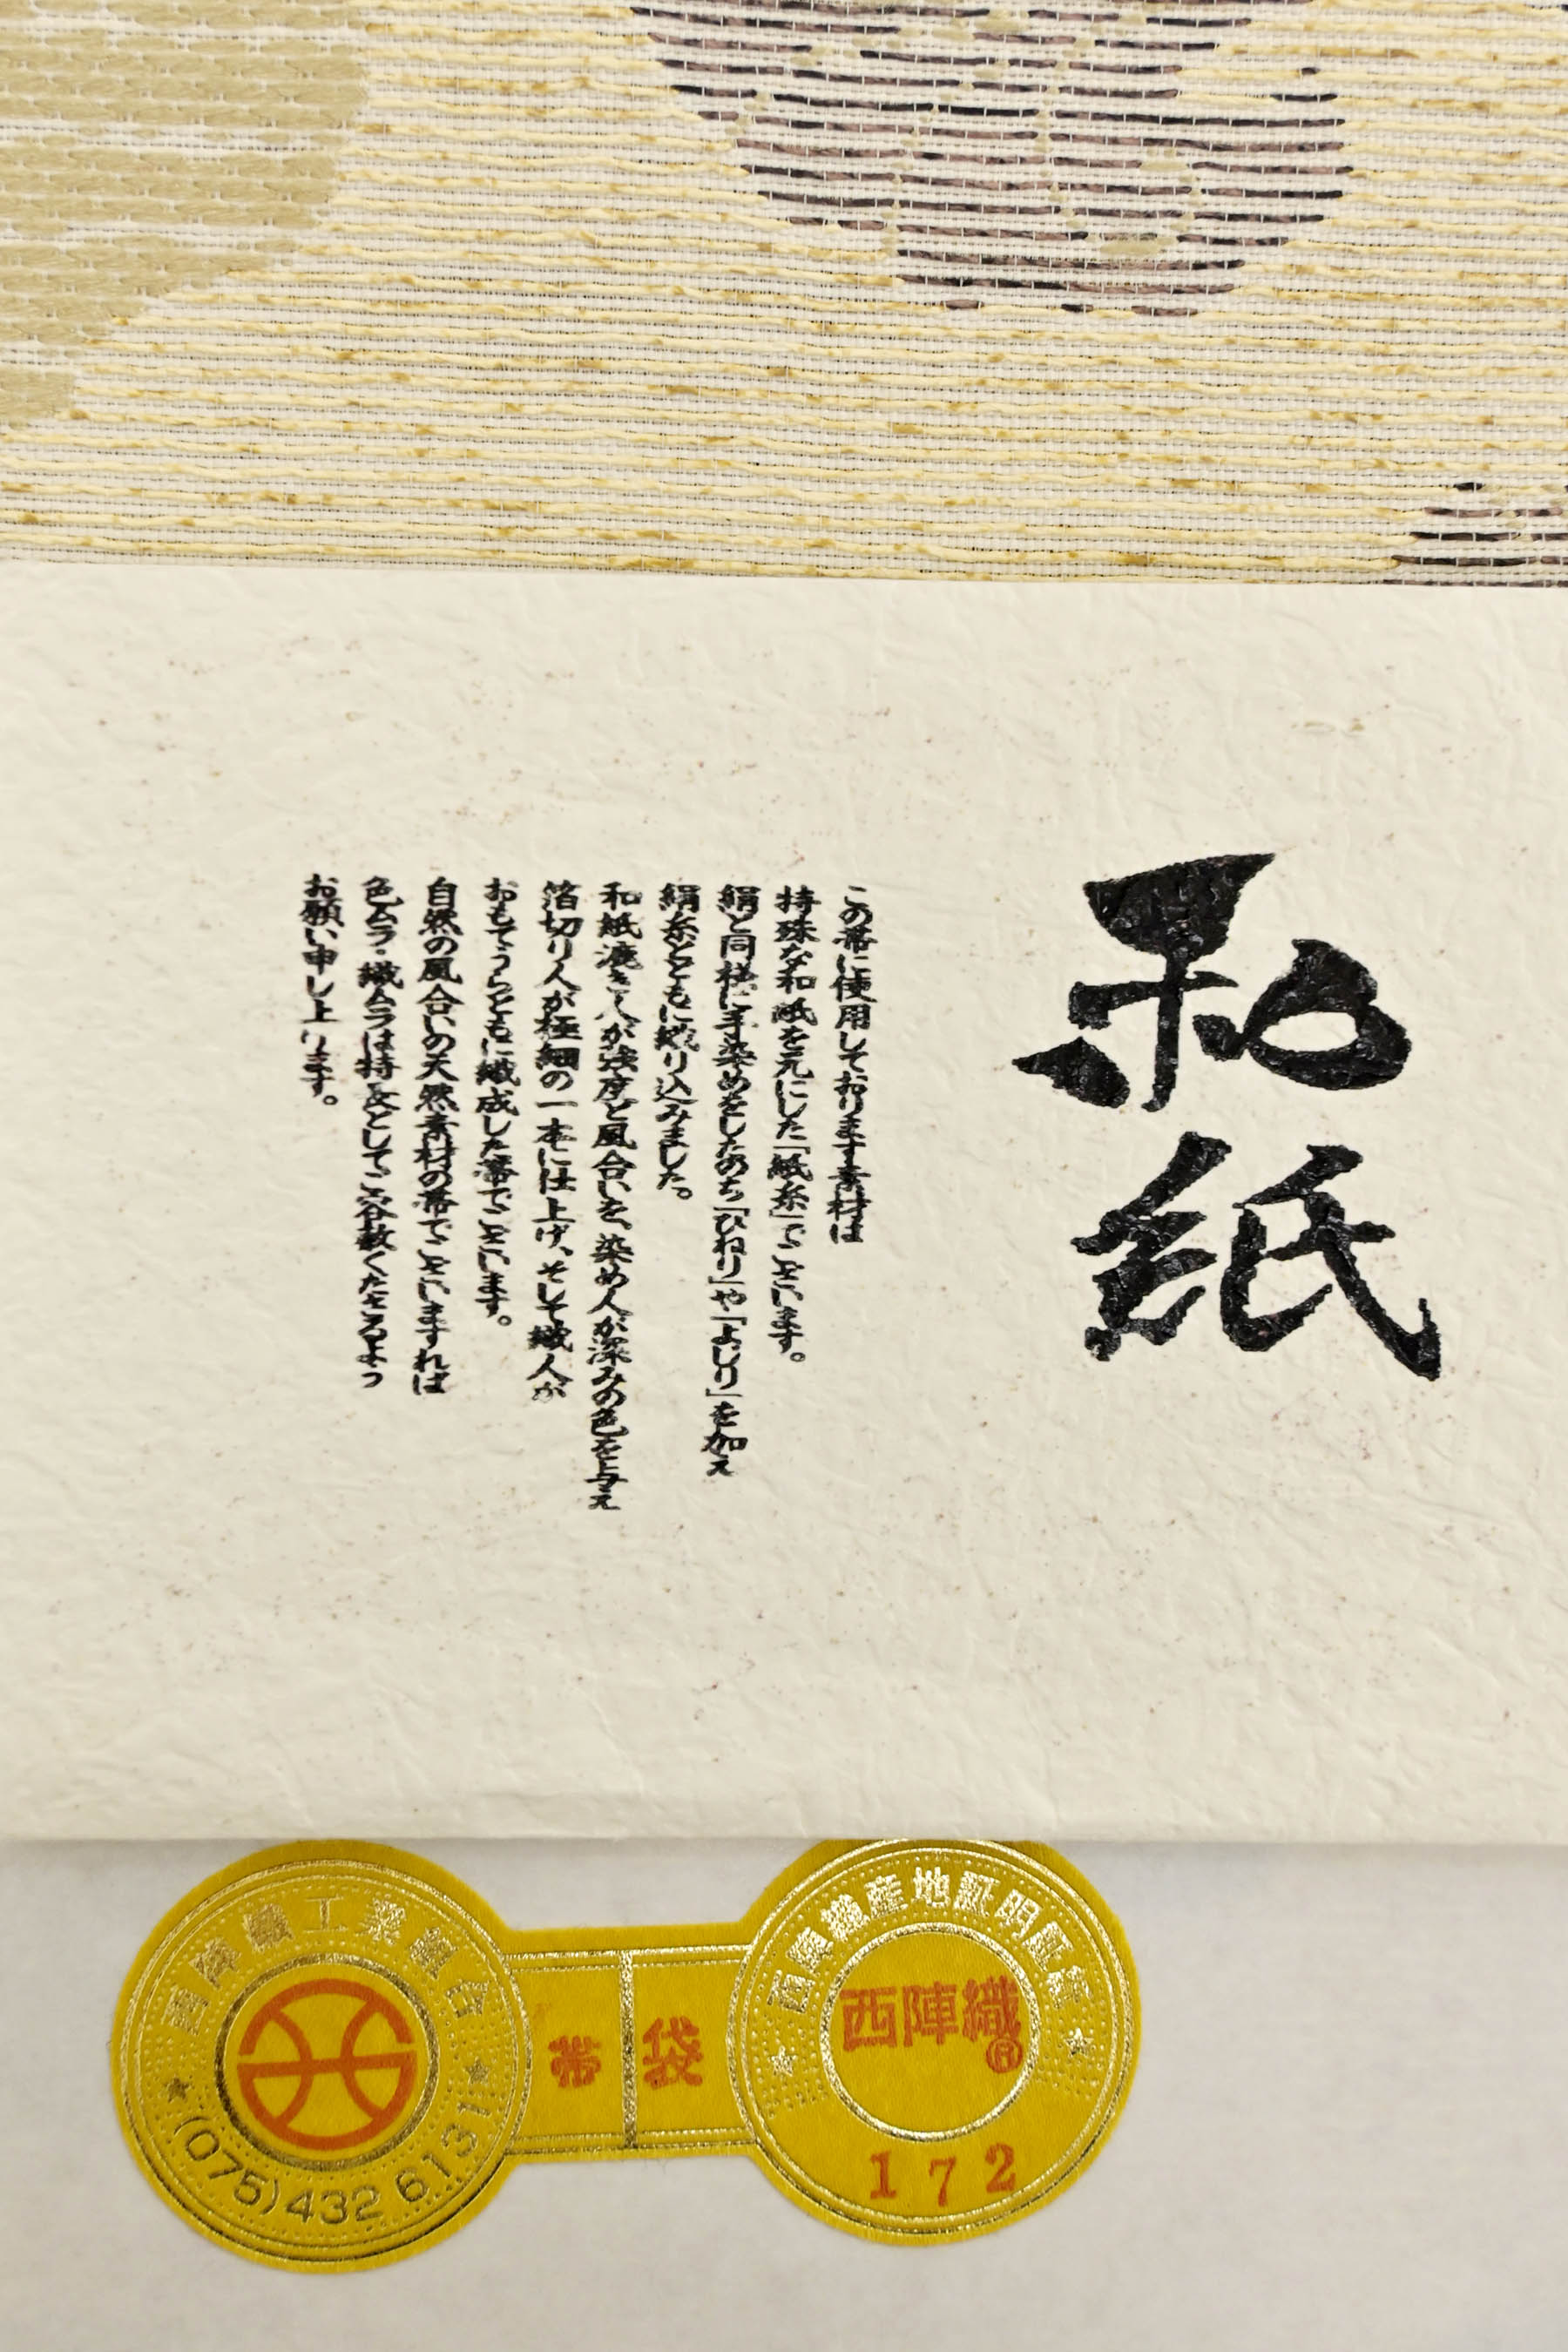 和紙
この帯に使用しております素材は
特殊な和紙を元にした「紙糸」でございます。
絹と同様に手染めをしたのち「ひねり」や「よじり」を加え
絹糸とともに織り込みました。
和紙漉き人が強度と風合いを、染め人が深みの色を与え
箔切り人が極細の一本に仕上げ、そして織人が
おもてうらともに織成した帯でございます。
自然の風合いの天然素材の帯でございますれば
色ムラ・織ムラは特長としてご容赦くださるよう
お願い申し上げます。
西陣織工業組合
(075)432 6131
帯
袋
西陣織産地証明証紙
西陣織®
172